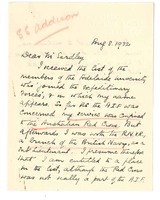 S S addison
Aug 8. 1932
Dear Mr Eardley
I received the list of the
members of the Adelaide University
who joined the Expeditionary
Forces, & on which my name
appears. So far as the A.I.F. was
concerned my service was confined
to the Australian Red Cross. But
afterwards I was with the
a branch of the British Navy, as a
Sub Lieutenant. I presume though
that I am entitled to a place
in the list, although the Red Cross
was not really a part of the A.I.F.